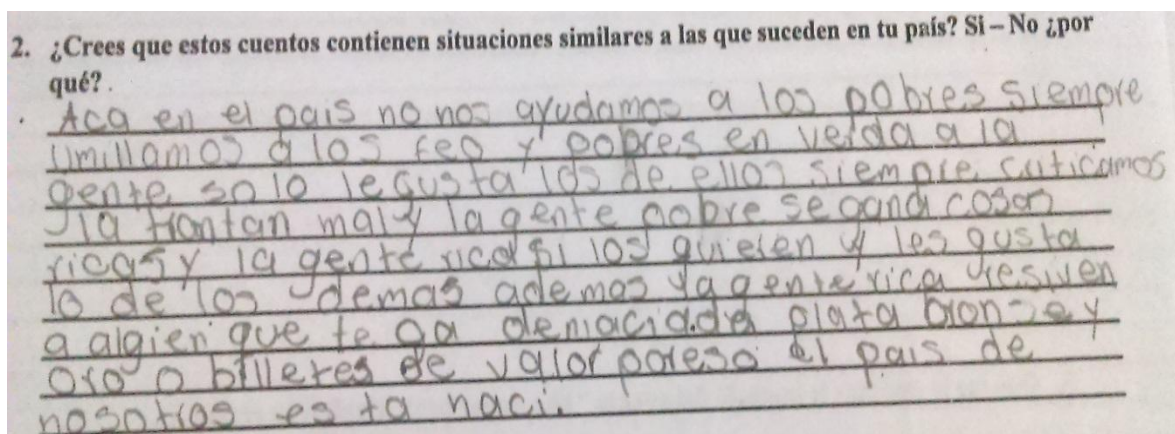 2. ¿Crees que estos cuentos contienen situaciones similares a las que suceden en tu país? Si – No ¿por
qué? .
Aca en el pais no nos ayudamos a los pobres siempre
umillamos a los feo y pobres en verda a la
gente solo le gusta los de ellos siempre criticamos
la trantan mal y la gente pobre se gana cosas
ricas y la gente rica si los quieren y les gusta
lo de los demas ademas la gente rica resiven
a algien que te ga demacidada plata bronze y
oro o billetes de valor poreso el pais de
nosotros es ta naci.